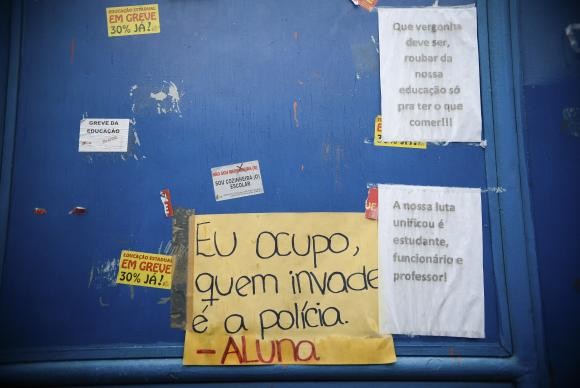 EDUCAÇÃO ESTADUAL
EM GREVE
30% JÁ!
Que vergonha
deve ser,
roubar da
nossa
educação só
pra ter o que
comer!!!
GREVE DA
EDUCAÇÃO
30% JÁ!
SOU COZINHEIRA (O)
ESCOLAR
A nossa luta
unificou é
estudante,
funcionário e
professor!
EDUCAÇÃO ESTADUAL
EM GREVE
30% JÁ!
EU OCUPO,
quem invade
é a polícia.
- ALUNA